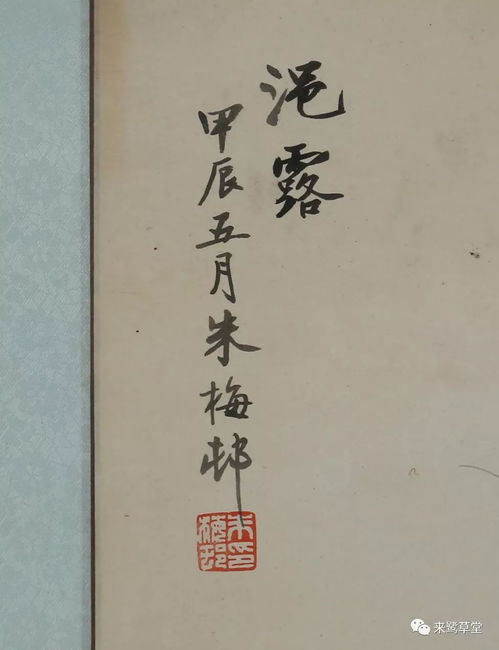 浥露
甲辰五月朱梅邨
朱印梅邨
来鹭草堂